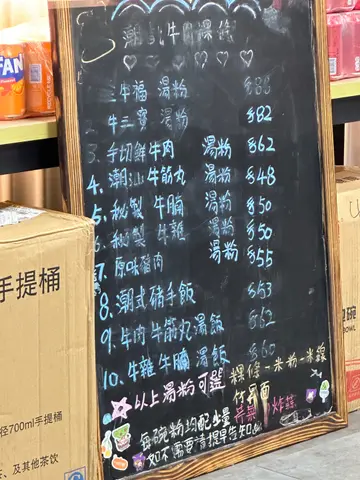 潮式牛肉粿條
牛福 湯粉 $88
2. 牛三寶 湯粉 $82
3. 手切鮮牛肉 湯粉 $62
4. 潮汕牛筋丸 湯粉 $48
5. 秘製 牛腩 湯粉 $50
6. 秘製 牛雜 湯粉 $50
7. 原味豬肉 湯粉 $55
8. 潮式豬手飯 $53
9. 牛肉牛筋丸湯飯 $62
10. 牛雜牛腩湯飯 $60
以上湯粉可選 粿條-米粉-米線
每碗粉均配少量 炸蒜
如不需要請提早告知
FAN
手提桶
径700ml手提桶
茶、及其他茶饮